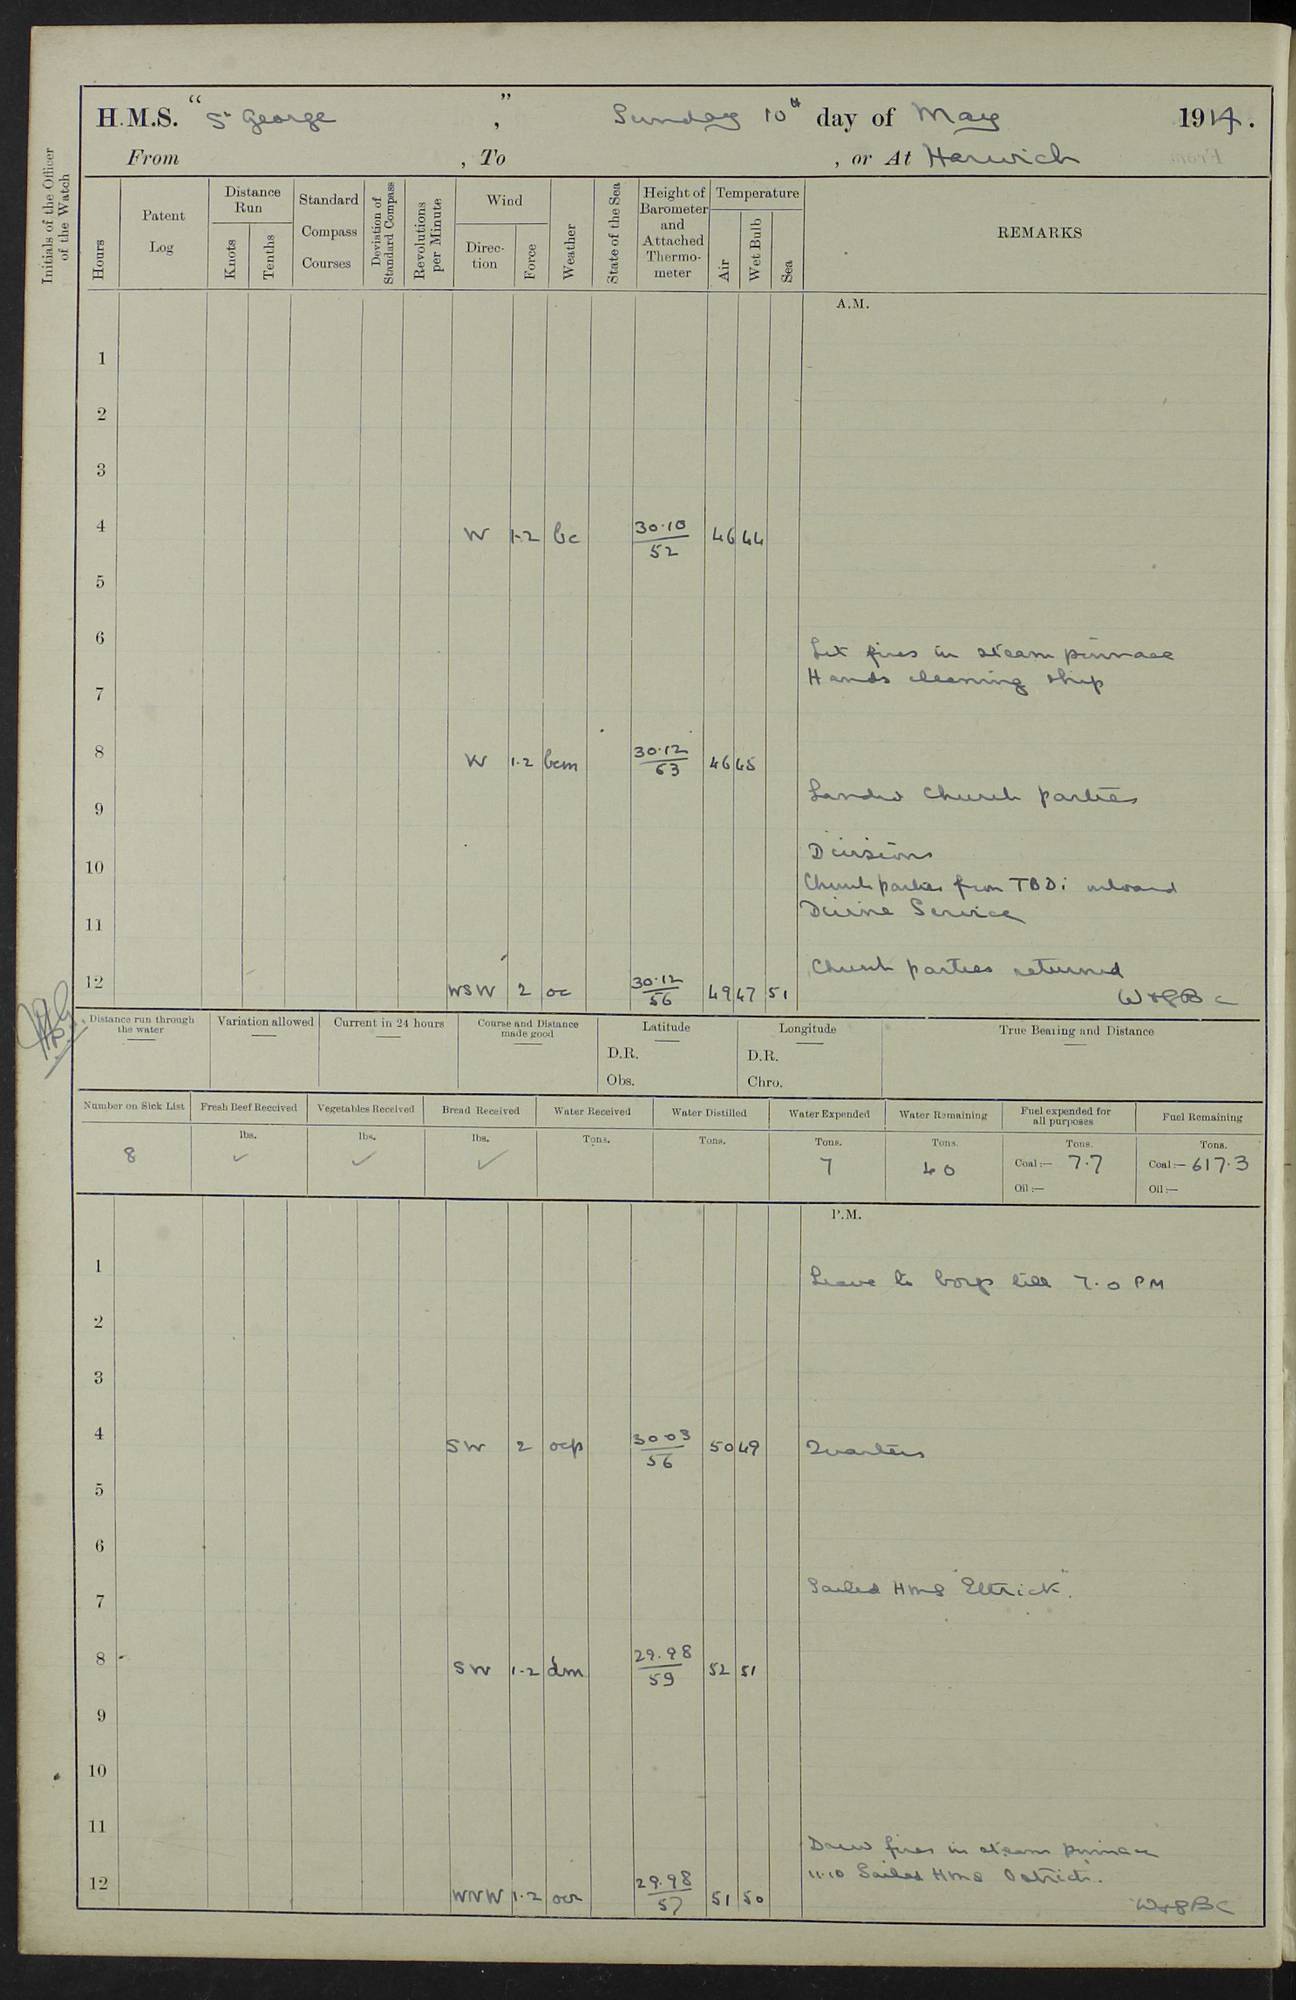 H.M.S. "St George", Sunday 10th day of May 1914.
From , To , or At Harwich
Initials of the Officer of the Watch
Hours
Patent Log
Distance Run
Knots
Tenths
Standard Compass Courses
Deviation of Standard Compass
Revolutions per Minute
Wind
Direction
Force
Weather
State of the Sea
Height of Barometer and Attached Thermometer
Temperature
Air
Wet Bulb
Sea
REMARKS
A.M.
1
2
3
4 W 1-2 bc 30.10/52 46 44
5
6
Lit fires in steam pinnace
Hands cleaning ship
7
8 W 1.2 bcm 30.12/63 46 45
Landed Church parties
9
Divisions
10
Church parties from TBDs onboard
Divine Service
11
Church parties returned
12 WSW 2 oc 30.12/56 49 47 51
Distance run through the water
Variation allowed
Current in 24 hours
Course and Distance made good
Latitude
D.R.
Obs.
Longitude
D.R.
Chro.
True Bearing and Distance
Number on Sick List
Fresh Beef Received
Vegetables Received
Bread Received
Water Received
Water Distilled
Water Expended
Water Remaining
Fuel expended for all purposes
Fuel Remaining
8
lbs. ✓
lbs. ✓
lbs. ✓
Tons.
Tons.
Tons. 7
Tons. 40
Tons. Coal:— 7.7
Oil:—
Tons. Coal:— 617.3
Oil:—
P.M.
1
Leave to boys till 7.0 PM
2
3
4 SW 2 ocp 30.03/56 50 49 Quarters
5
6
Sailed HMS "Ettrick".
7
8 SW 1.2 dm 29.98/59 52 51
9
10
11
Drew fires in steam pinnace
11.10 Sailed HMS Ostrich.
12 WNW 1.2 ocr 29.98/57 51 50